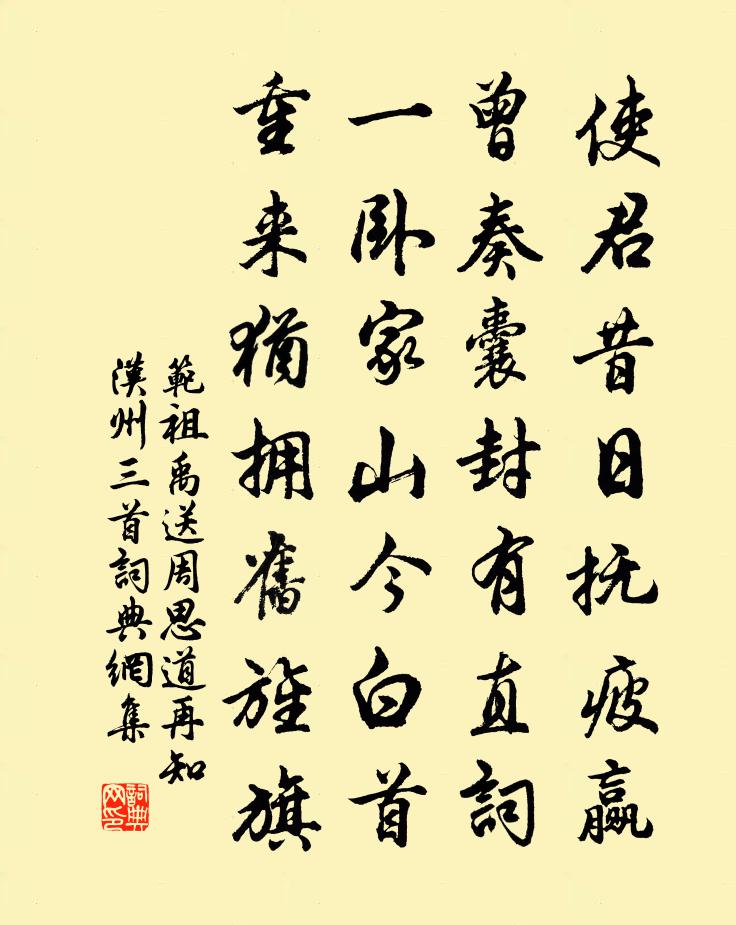 使君昔日抚疲羸
曾奏囊封有直詞
一卧家山今白首
重来猶拥舊旌旗
範祖禹送周思道再知
漢州三首詞典網集
詞典
网印